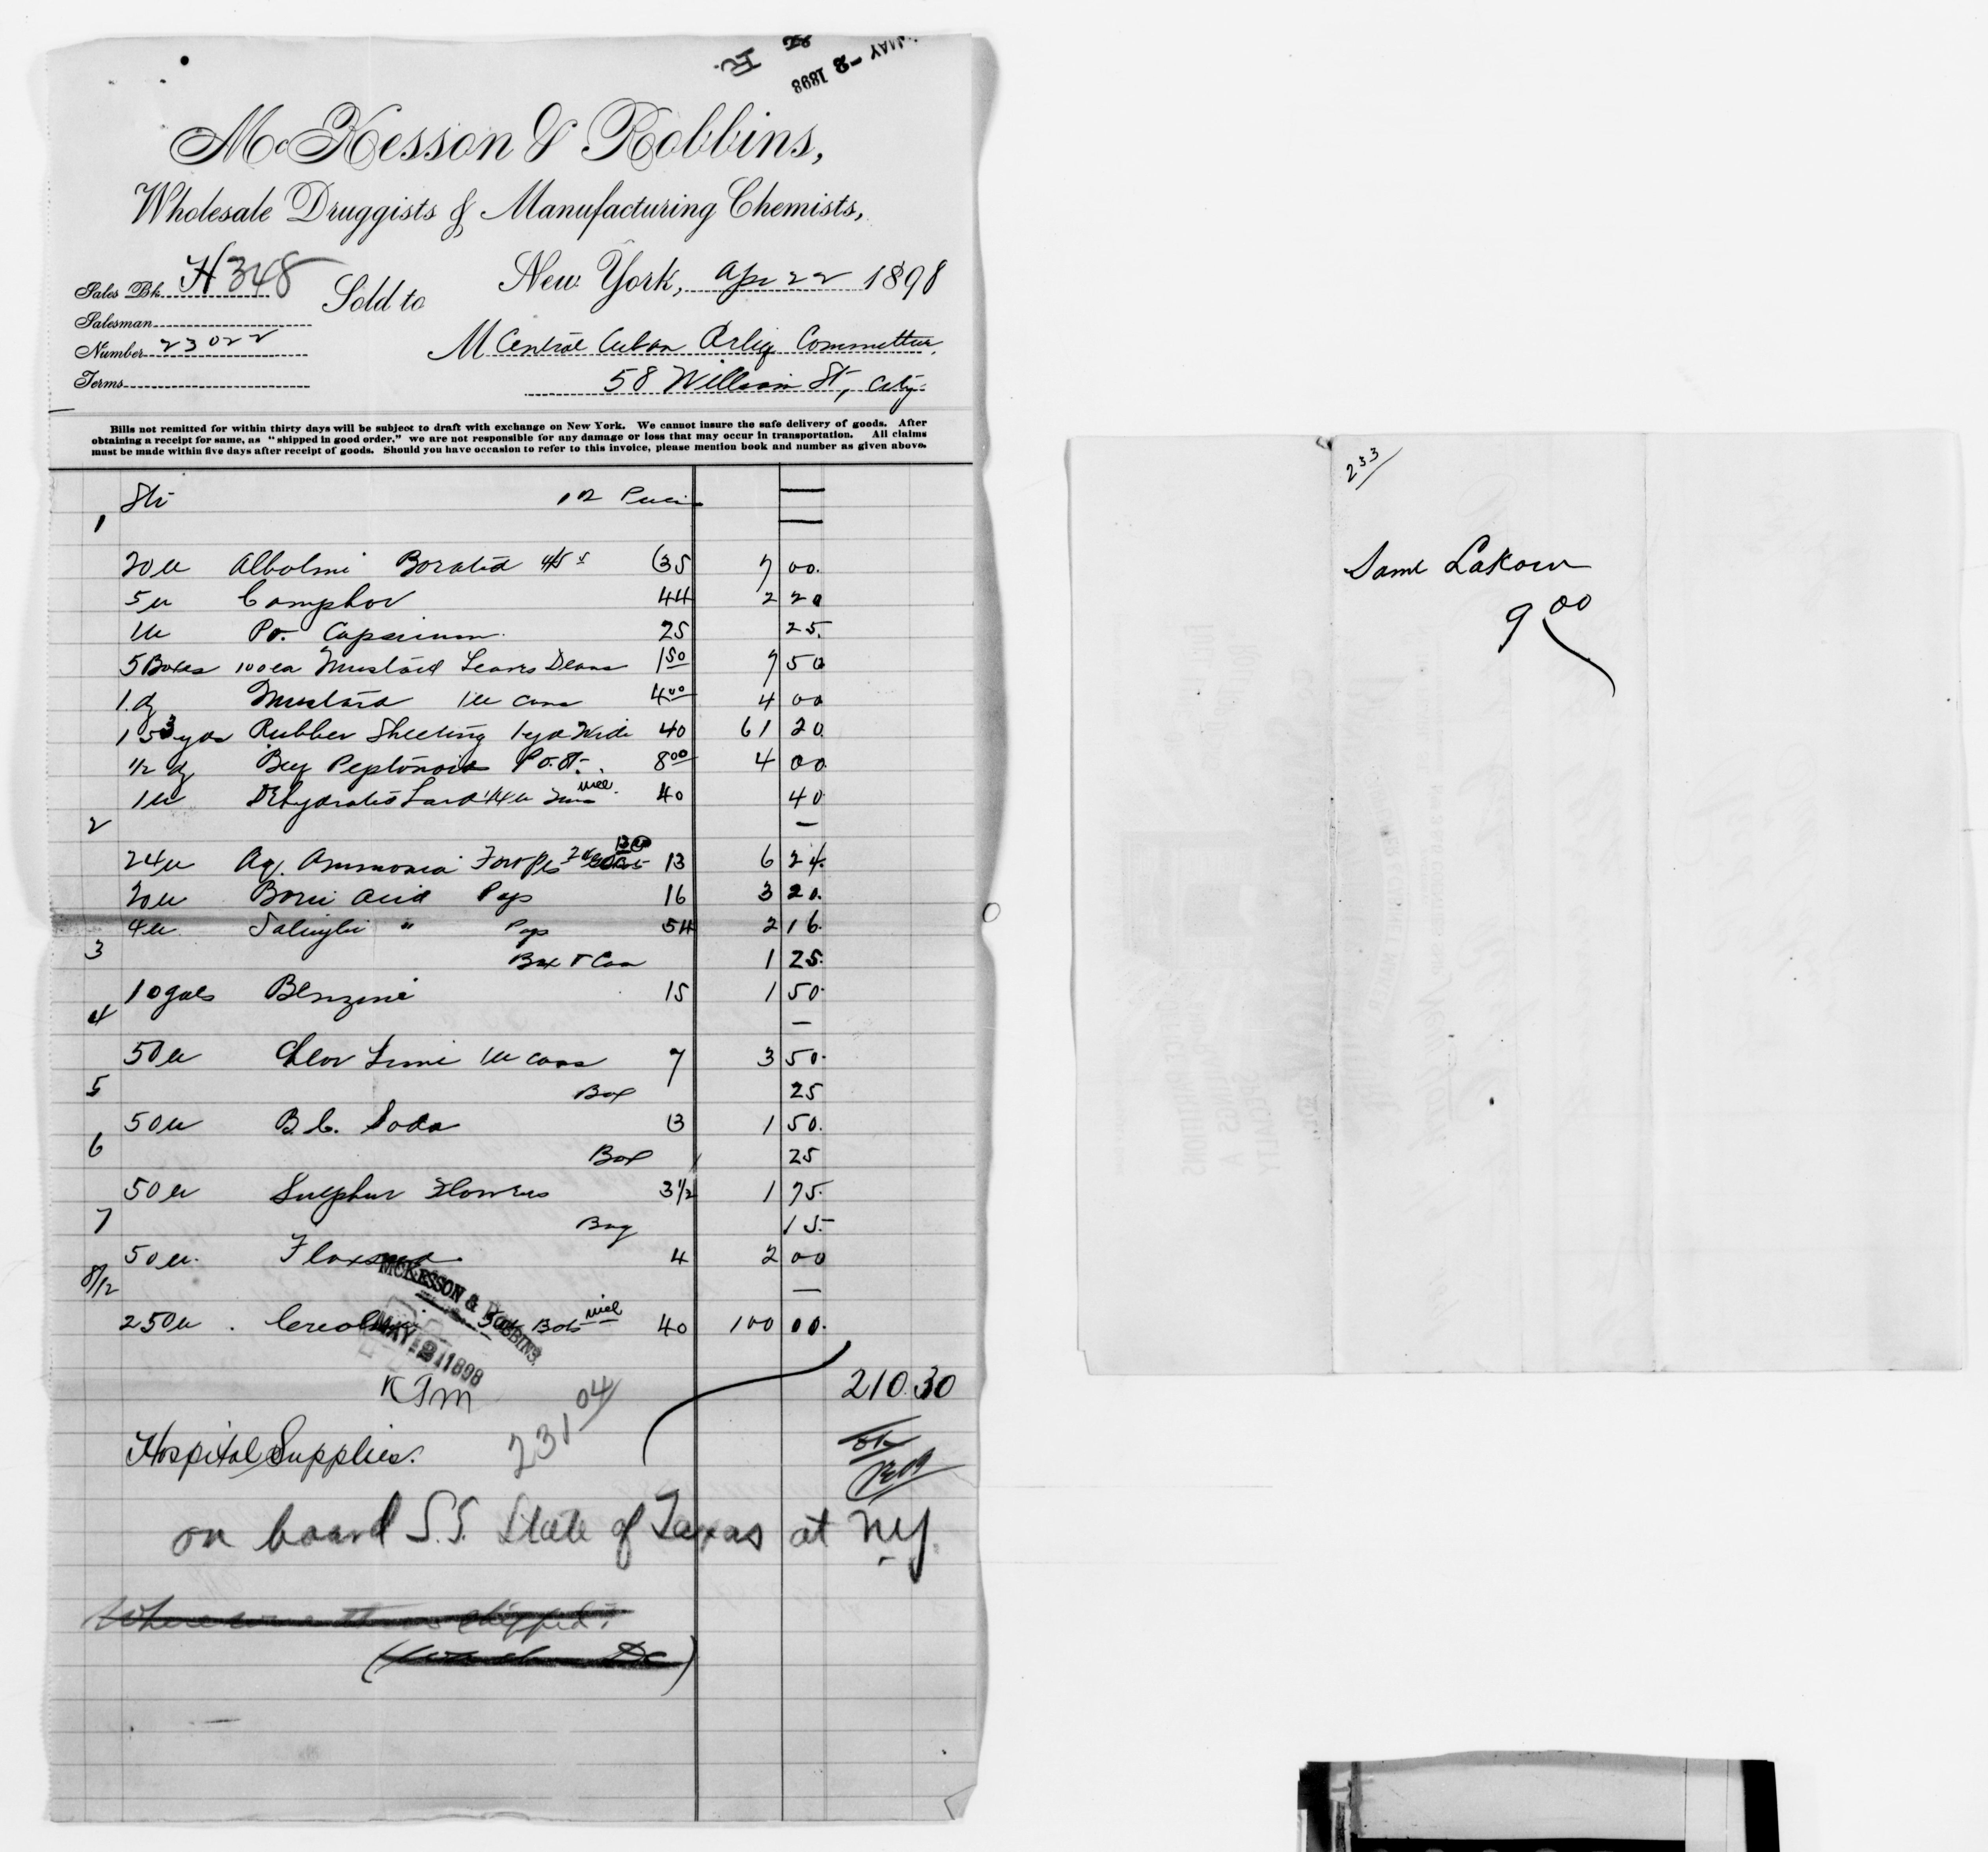 MAY -2 1898
McKesson & Robbins,
Wholesale Druggists & Manufacturing Chemists,
Sales Bk. H 348
Sold to
New York, Apr 22 1898
Salesman
Number 23022
M Central Cuban Relief Committee,
Terms
58 William St, City.
Bills not remitted for within thirty days will be subject to draft with exchange on New York. We cannot insure the safe delivery of goods. After
obtaining a receipt for same, as "shipped in good order," we are not responsible for any damage or loss that may occur in transportation. All claims
must be made within five days after receipt of goods. Should you have occasion to refer to this invoice, please mention book and number as given above.
1
20 lb Albolini Borated 35 7 00.
5 lb Camphor 44 2 20
1 lb Po. Capsicum 25 25.
5 Boxes 100 ea Mustard Leaves Deans 1 50 7 50
1 dz Mustard 1 lb cans 4 00 4 00
153 yds Rubber Sheeting 1 yd Wide 40 61 20
1/2 dz Beef Peptonoids Po. 8 00 4 00
1 lb 40 40
2
24 lb Aq. Ammonia Fort 13 6 24
20 lb Boric Acid Pgs 16 3 20.
4 lb Salicylic " Pgs 54 2 16.
3
Box & Can 1 25.
10 gals Benzine 15 1 50
4
50 lb Chlor Lime 1 lb cans 7 3 50.
5
Box 25
50 lb B.C. Soda 3 1 50.
6
Box 25
50 lb Sulphur Flowers 3 1/2 1 75.
7
Bag 15.
50 lb. Flaxseed 4 2 00
8/12
250 lb. Creolin Bots 40 100 00.
McKESSON & ROBBINS.
MAY 2 1898
210.30
231 04
Hospital Supplies.
on board S.S. State of Texas at N.Y.
233
Saml Lakow
9 00